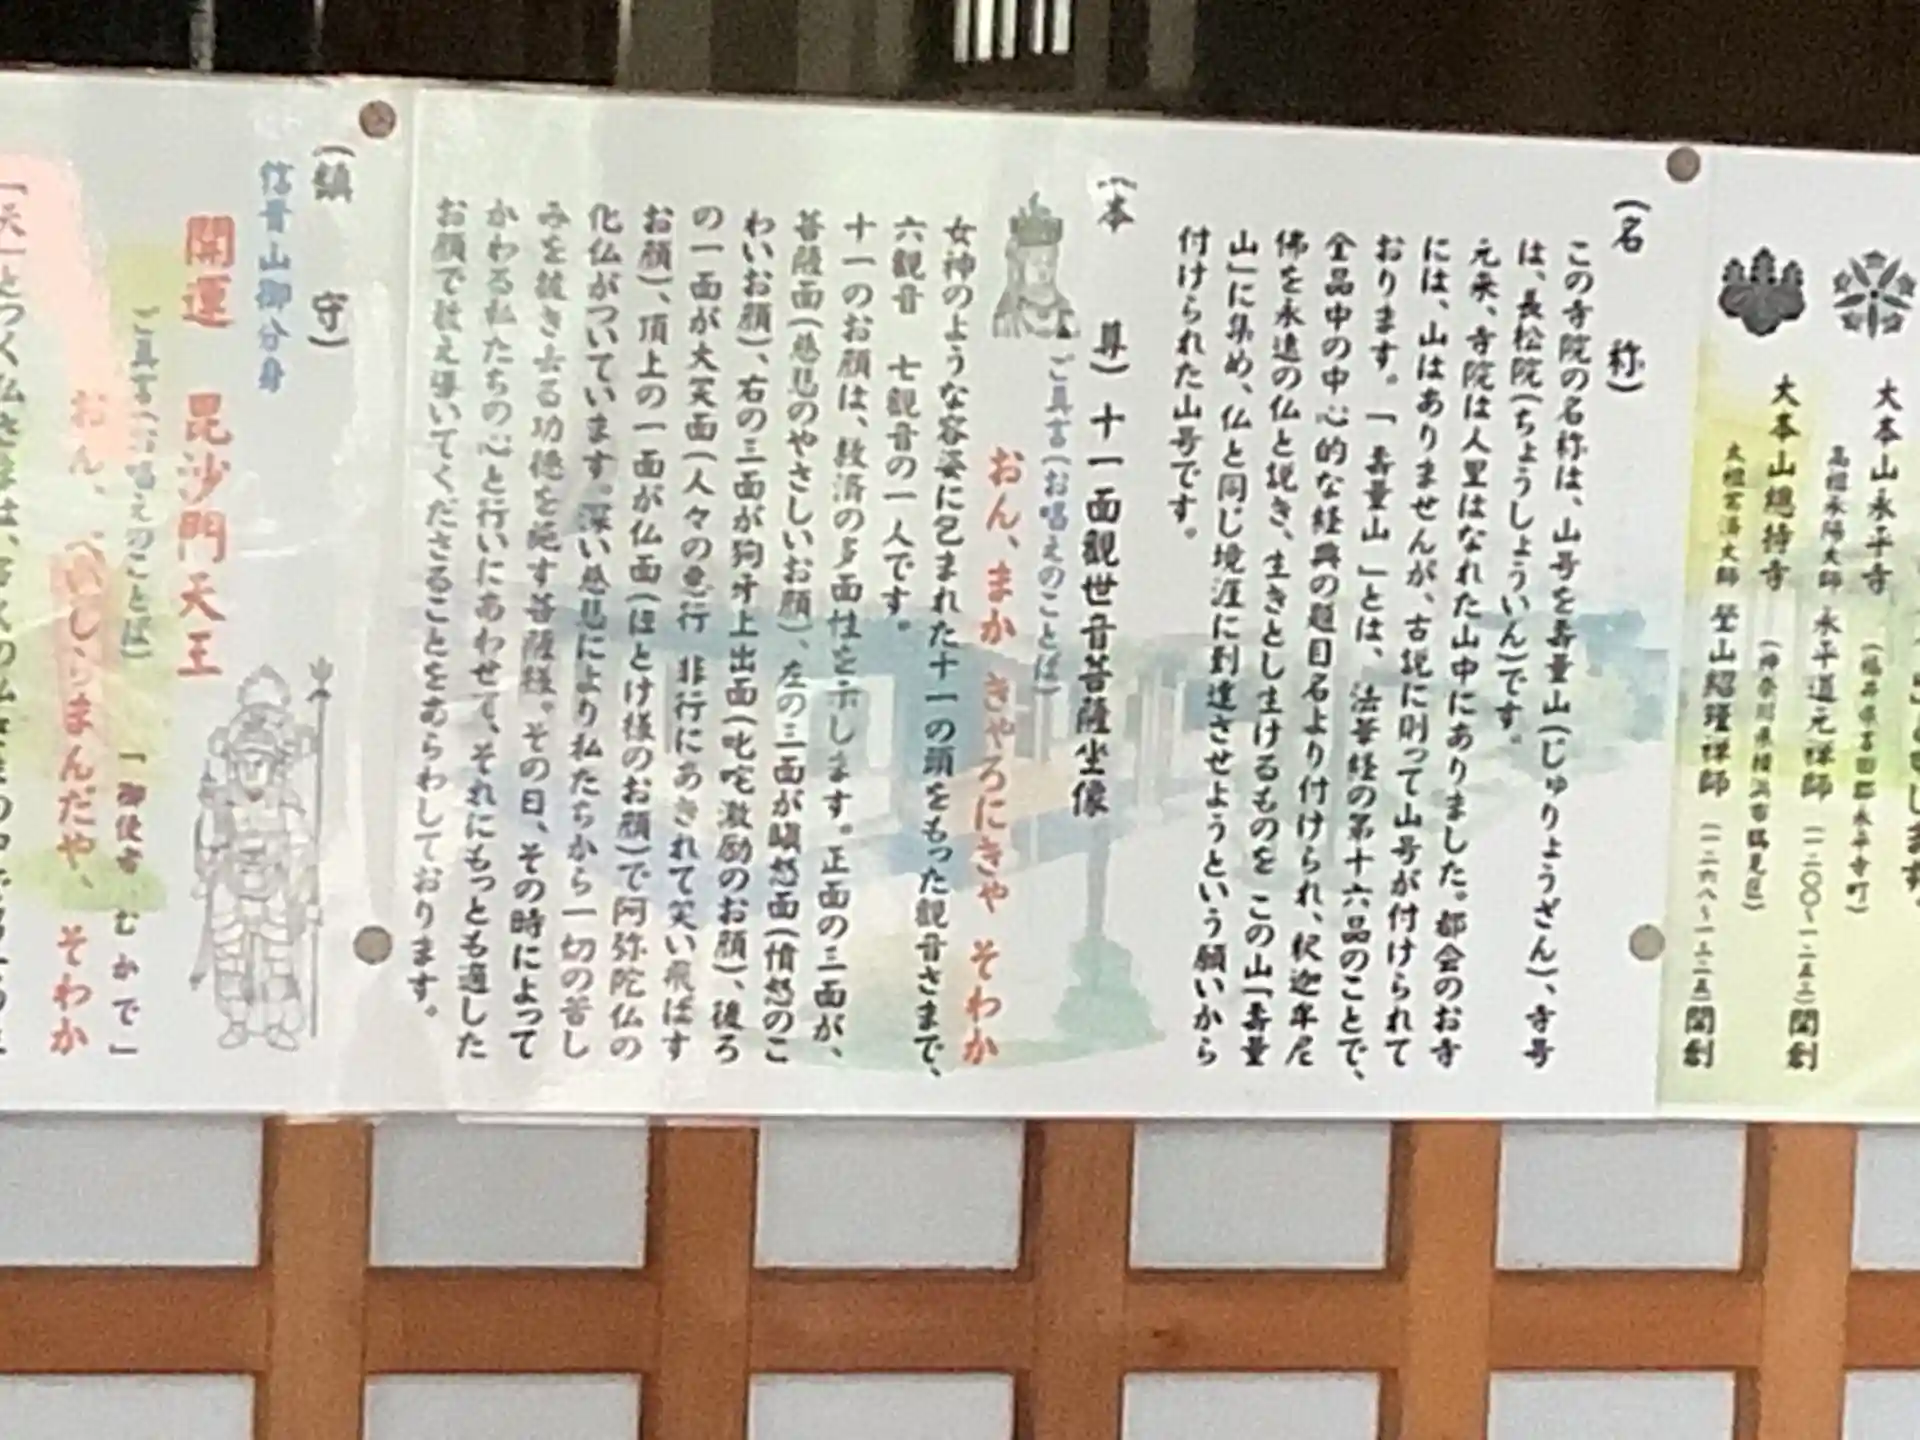 大本山永平寺
(福井県吉田郡永平寺町)
高祖承陽大師 永平道元禅師 (一二〇〇〜一二五三)開創
大本山總持寺
(神奈川県横浜市鶴見区)
太祖常済大師 瑩山紹瑾禅師 (一二六八〜一三二五)開創
(名 称)
この寺院の名称は、山号を壽量山(じゅりょうざん)、寺号
は、長松院(ちょうしょういん)です。
元来、寺院は人里はなれた山中にありました。都会のお寺
には、山はありませんが、古説に則って山号が付けられて
おります。「壽量山」とは、法華経の第十六品のことで、
全品中の中心的な経典の題目名より付けられ、釈迦牟尼
佛を永遠の仏と説き、生きとし生けるものを この山「壽量
山」に集め、仏と同じ境涯に到達させようという願いから
付けられた山号です。
(本 尊) 十一面観世音菩薩坐像
ご真言(お唱えのことば)
おん、まか きゃろにきゃ そわか
女神のような容姿に包まれた十一の頭をもった観音さまで、
六観音 七観音の一人です。
十一のお顔は、救済の多面性を示します。正面の三面が、
菩薩面(慈悲のやさしいお顔)、左の三面が瞋怒面(憤怒のこ
わいお顔)、右の三面が狗牙上出面(叱咤激励のお顔)、後ろ
の一面が大笑面(人々の悪行 非行にあきれて笑い飛ばす
お顔)、頂上の一面が仏面(ほとけ様のお顔)で阿弥陀仏の
化仏がついています。深い慈悲により私たちから一切の苦し
みを抜き去る功徳を施す菩薩様。その日、その時によって
かわる私たちの心と行いにあわせて、それにもっとも適した
お顔で教え導いてくださることをあらわしております。
(鎮 守)
信貴山御分身
開運 毘沙門天王
ご真言(お唱えのことば) 「御使者 むかで」
おん、べいしらまんだや、そわか